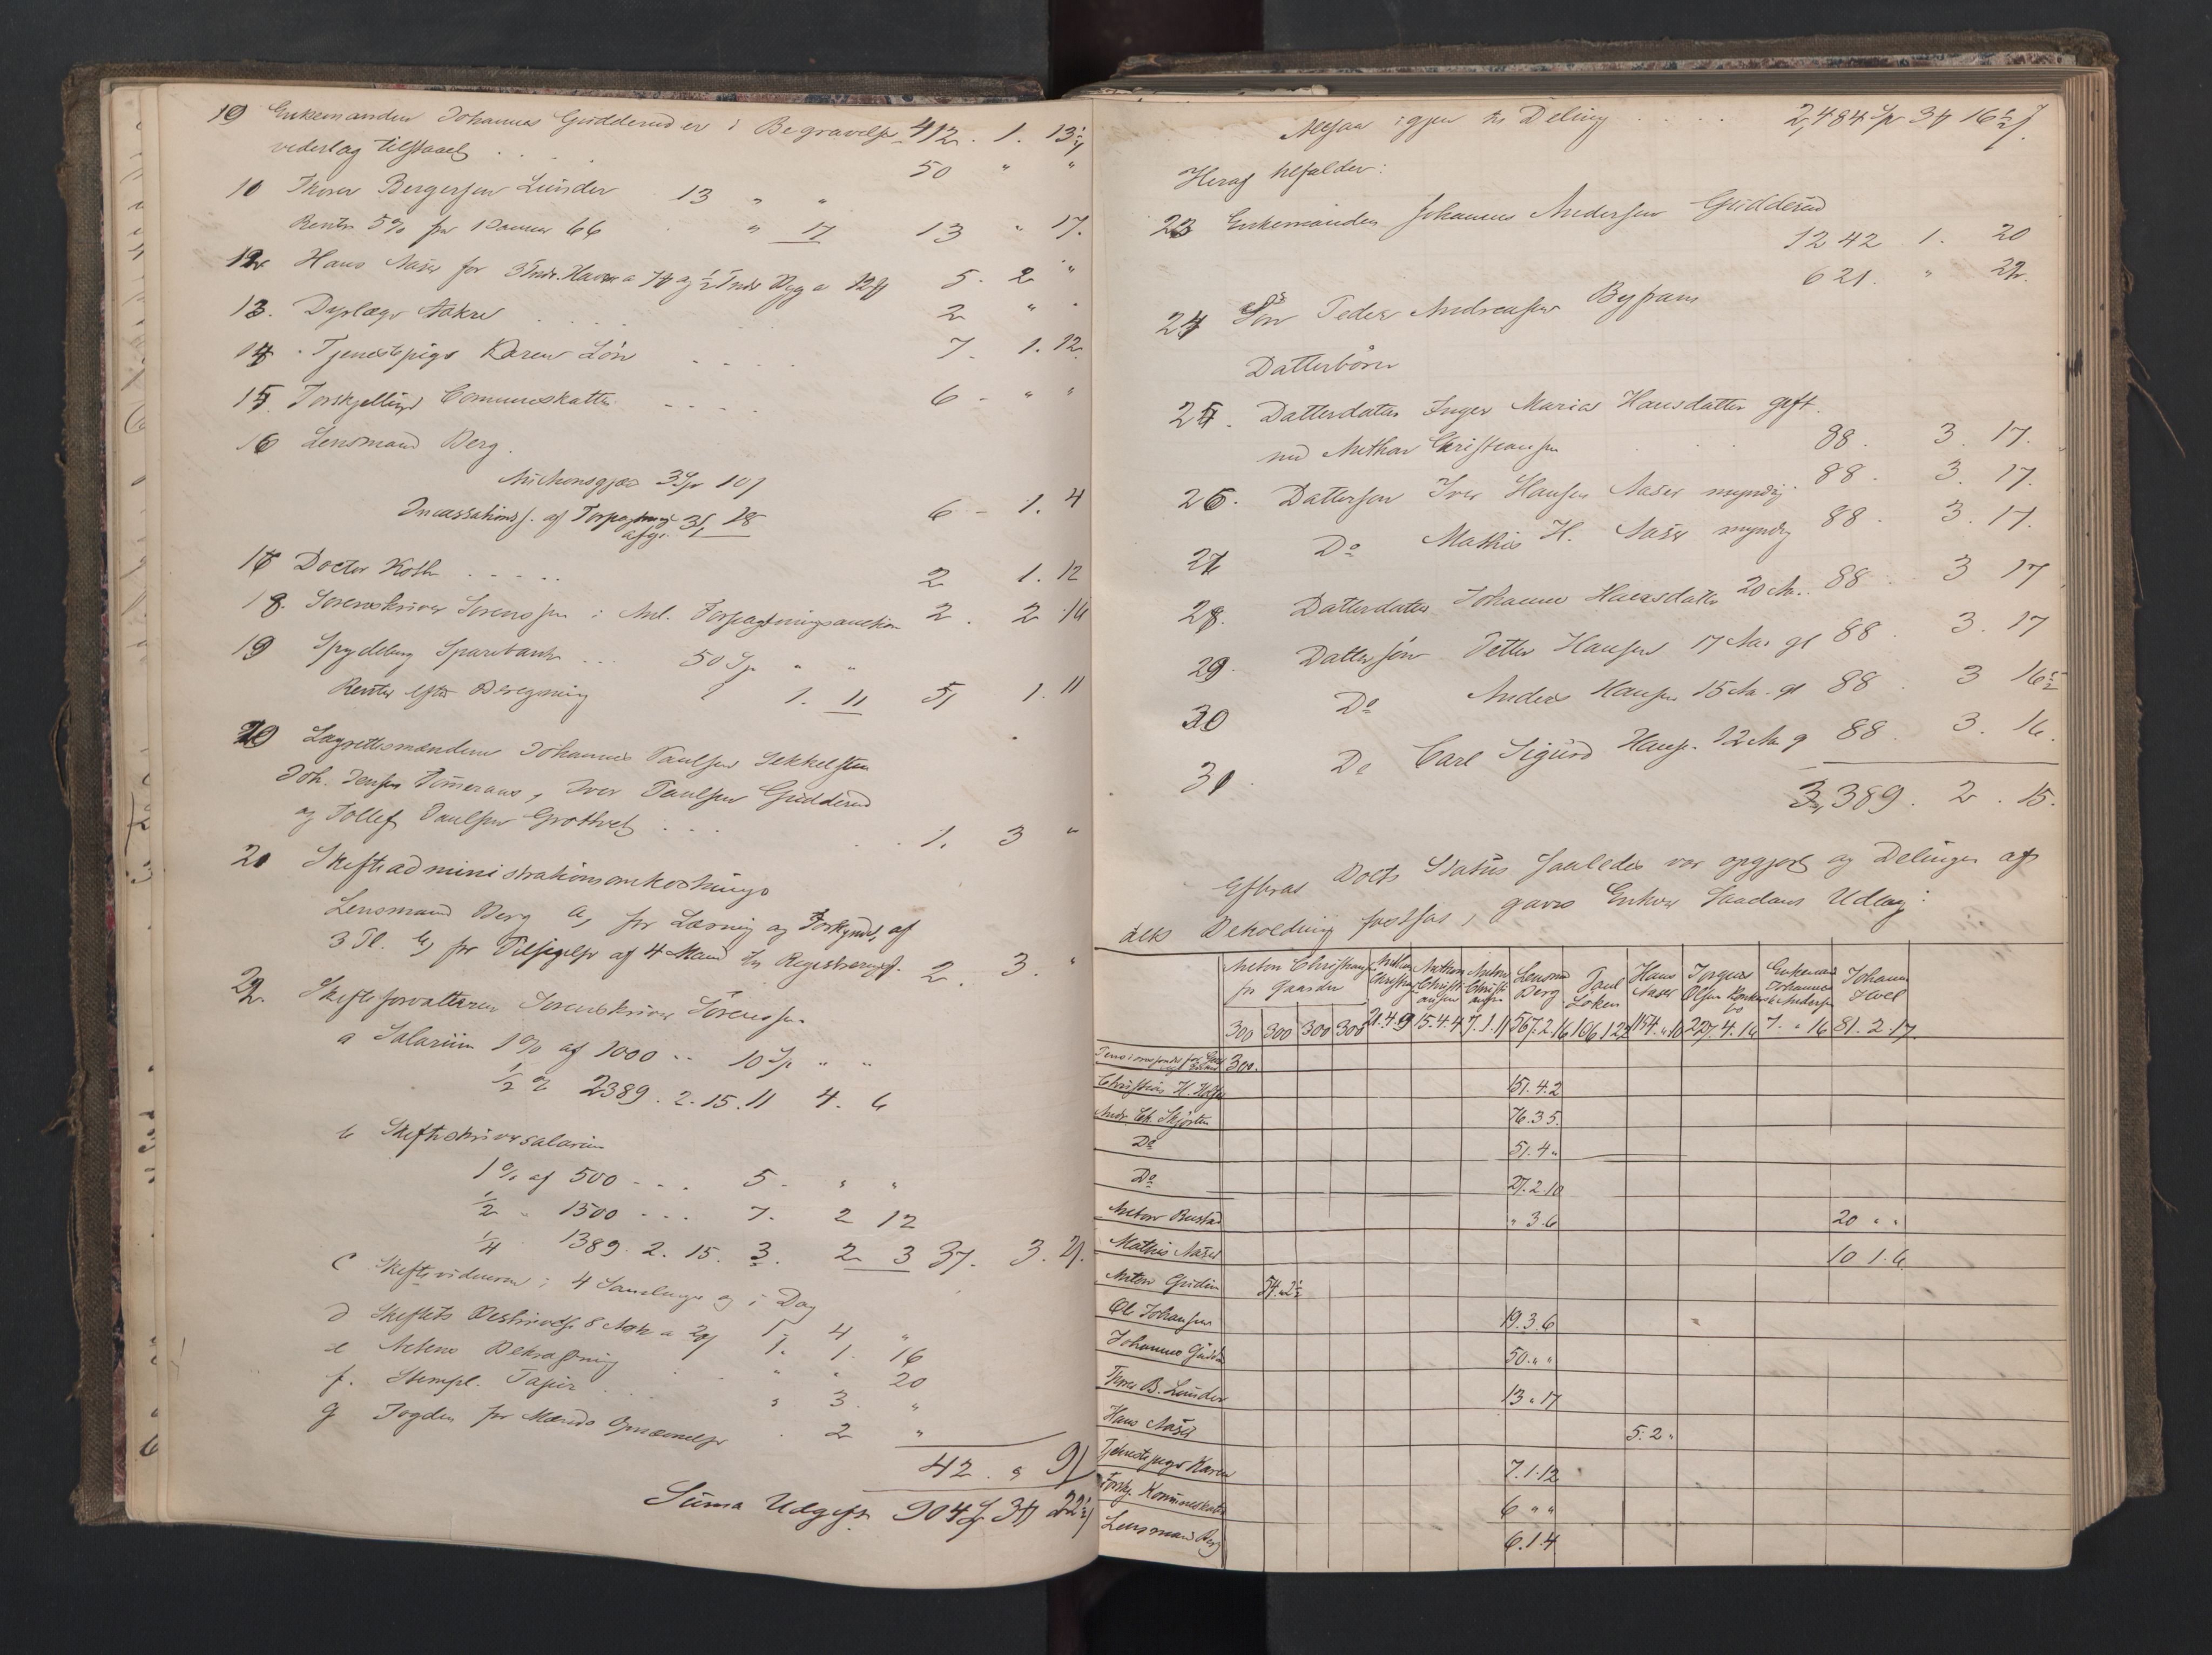 412. 1. 13½
10 Enkemanden Johannes Gudderud er i Begravelses
vederlag tilstaaet . . . 50 " "
10 Thorer Bergersen Lunder 13 " "
Renter 5% fra 1 Januar 66 " 17 13 " 17.
12. Hans Aaser for 3 Tndr. Havre a 7 og ½ Tnde Byg a 12 5. 2 "
13. Dyrlæge Aakre . . . 2 " "
14. Tjenestepige Karen Løn . . . 7. 1. 12
15. Forskjellige Communeskatter . . . 6 - " "
16 Lensmand Berg.
Auctionsgjæld 3 Sp 10
Incassations af Forpagtnings
afg. 3, 18 6 - 1. 4
17 Doctor Koth . . . 2 1. 12
18. Sorenskriver Sørenssen i Anl. Forpagtningsauction 2. 2 16
19 Spydeberg Sparebank . . . 50 Sp " "
Renter efter Beregning 1. 11 51 1. 11
20 Lagrettesmændene Johannes Paulsen Sekkelsten
Joh. Jensen Temmeraas, Iver Paulsen Gudderud
og Tollef Paulsen Grottvet . . . 1. 3 "
21 Skifteadministrationsomkostninger
Lensmand Berg a, for Læsning og Forkyndt af
3 Pl. b, for Tilsigelse af 4 Mænd til Registrering 2. 3. "
22. Skifteforvalteren Sorenskriver Sørenssen
a Salarium 1% af 1000 .. 10 Sp " "
½ % 2389. 2. 15. 11 4. 6
b Skifteskriversalarium
1% af 500 - . . 5. " "
½ " 1500 - . . 7. 2 12
¼ 1389. 2. 15. 3. 2 3 37. 3. 21.
c Skiftevidnerne i 4 Samlinger og i Dag
d Skiftets Beskrivelse 8 Ark a 20 1. 4 "
e Aktens Bekræftning 1. 1. 16
f. Stempl. Papir . . . " " 20
g Fogden for Mænds Opnævnelse " 3. "
. 2 "
42. " 9
Suma Udgift 904 Sp 3 22½
Altsaa igjen til Deling . . . . 2,484 Sp 3 16½
Heraf tilfalder:
23 Enkemanden Johannes Andersen Gudderud
1242 1. 20
24 Søn Peder Andreassen Byfram 621. " 22.
Datterbørn
25. Datterdatter Inger Maria Hansdatter gift
med Anthon Christiansen . . 88. 3. 17.
26. Dattersøn Iver Hansen Aaser myndig. 88. 3. 17.
27 Do Mathis H. Aaser myndig 88. 3. 17.
28. Datterdatter Johanne Hansdatter 20 Aa. 88. 3 17
29. Dattersøn Petter Hansen 17 Aar gl 88. 3. 17
30 Do Anders Hansen 15 Aa. gl 88. 3 16½
31. Do Carl Sigurd Hans. 12 Aa g 88. 3. 16.
3,389. 2. 15.
Efterat Boets Status saaledes var opgjort og Delingen af
dets Beholdning fastsat, gaves Enhver Saadant Udlæg:
Anton Christiansen for Gaarden
Anthon Christi
Anthon Christiansen
Anton Christiansen
Lensmd Berg
Paul Løken
Hans Aaser
Jørgen Olsen
Enkemand Johannes Andersen
Johannes Hoel
300 300 300 300 21.4.9 15.4.4 7.1.11 567.2.16 106 1 22 154.„.10 227.4.14 7. " 16 81. 2. 17.
300.
Christian H. 151. 4. 2
Andr. Ch. Skjørten 76. 3 5.
Do 51. 4 "
Do 27. 2. 10
Anton Bustad " 3. 6 20 " "
Mathis Aaser 10 1. 6
Anton Gudim 54. „ 2½
Ole Johansen 19. 3. 6
Johannes Gudderud 50. " "
Thorer B. Lunder 13 " 17
Hans Aaser 5. 2 "
Tjenestepige Karen 7. 1. 12
Forskj. Kommuneskatter 6 " "
Lensmand Berg 6. 1. 4